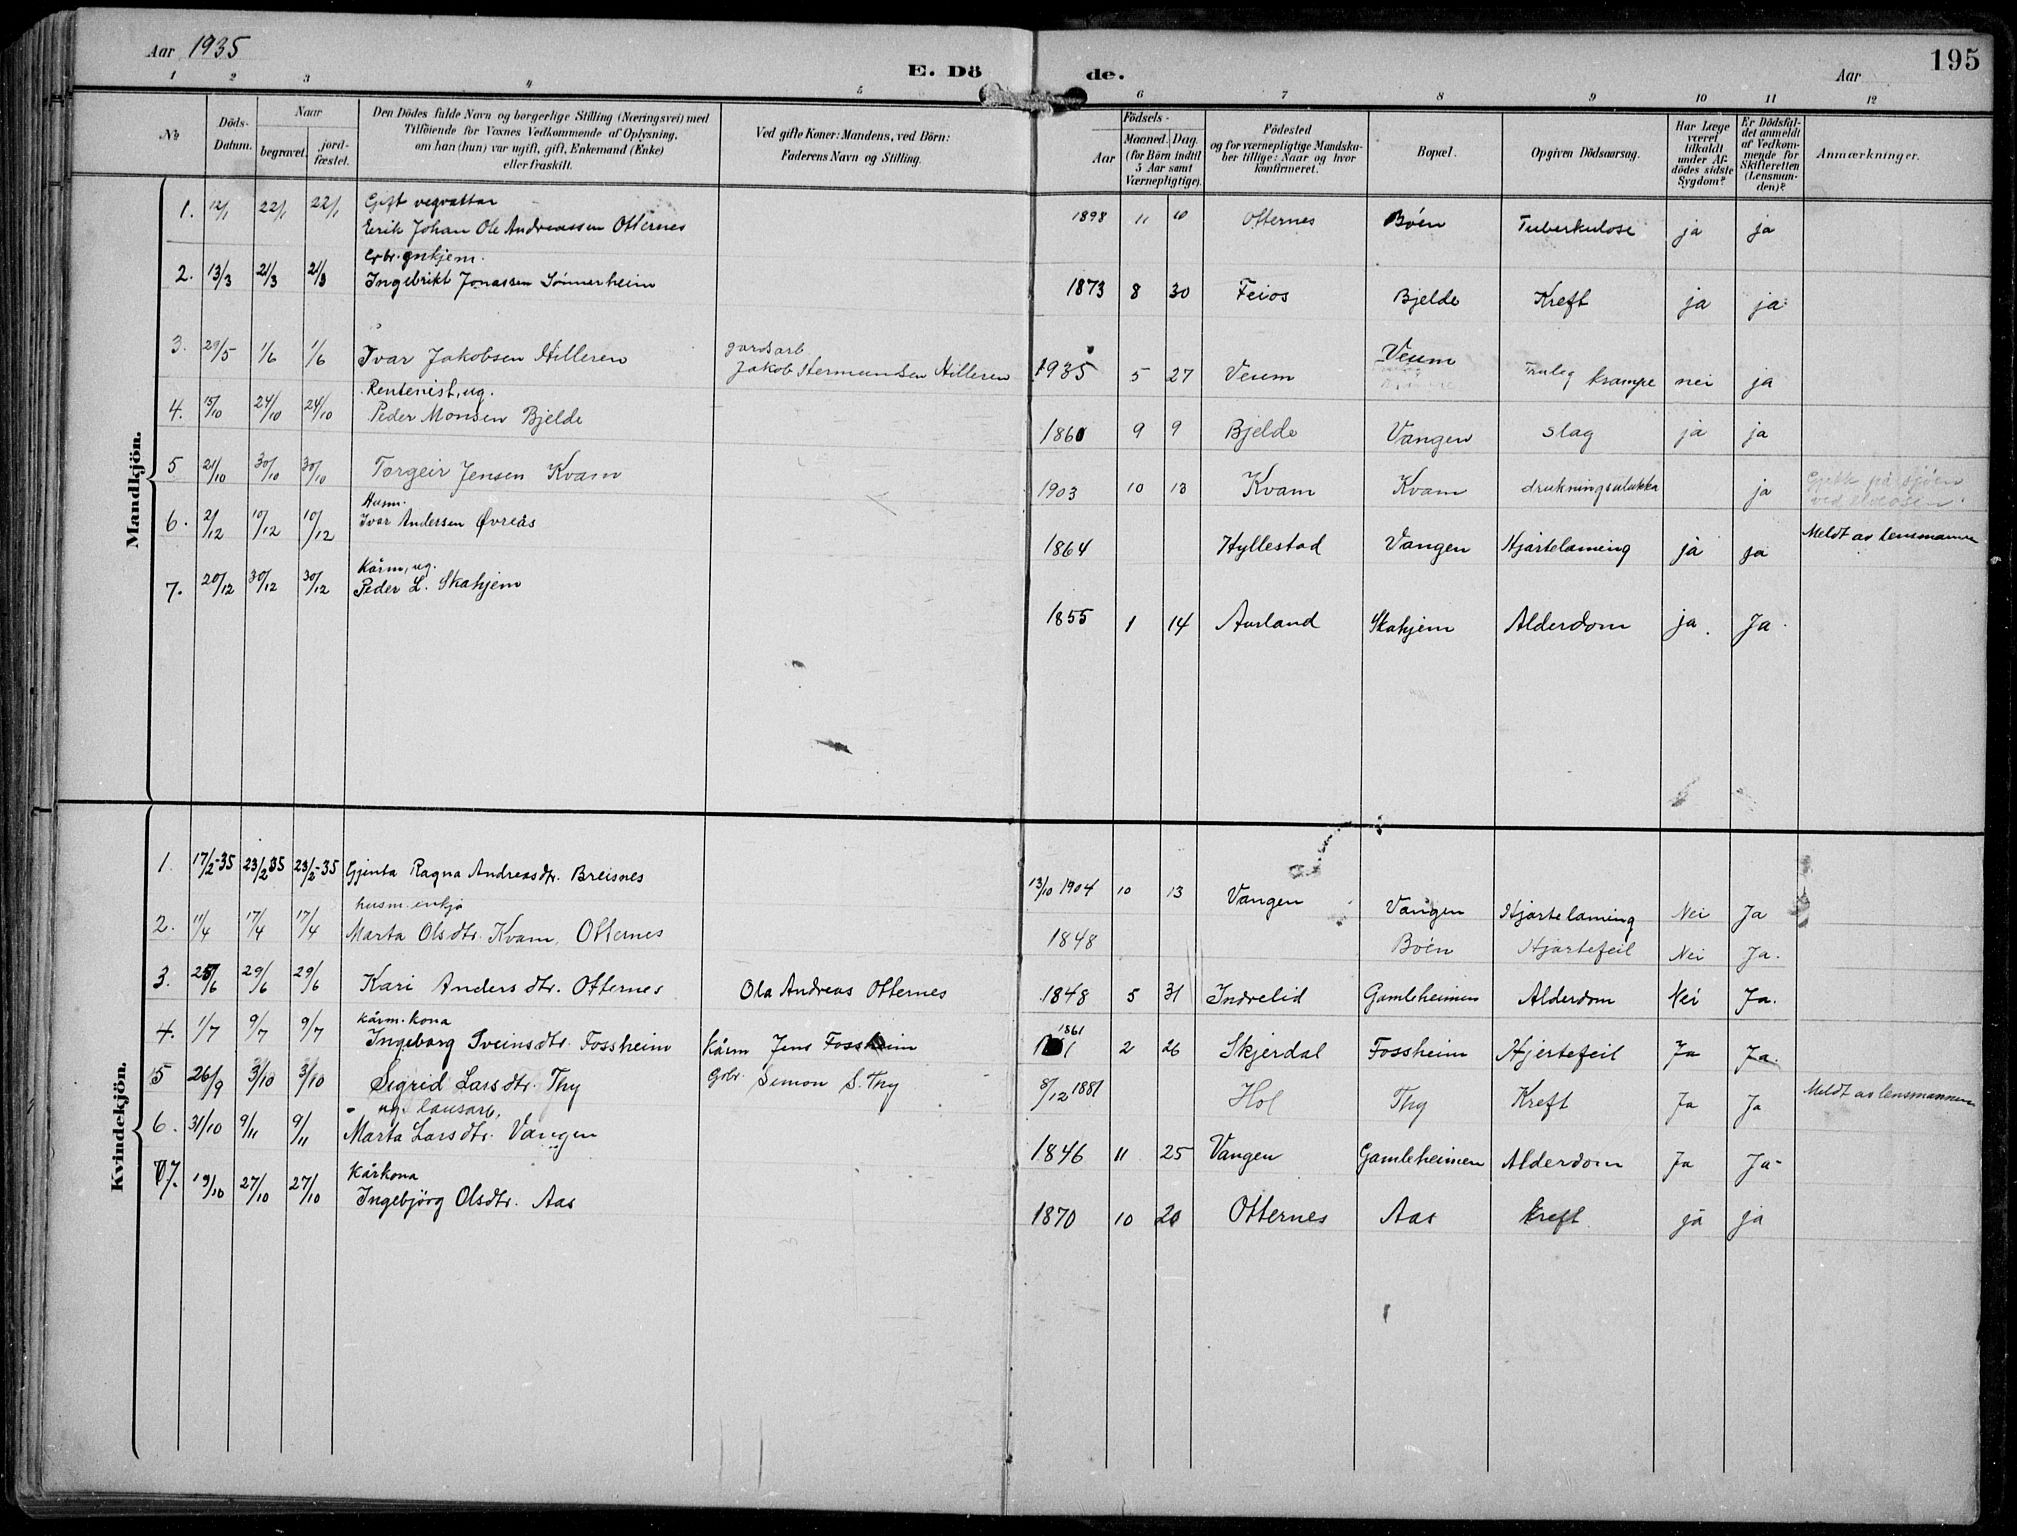 Aar 1935
E. Dö
de.
Aar
195
1 2 3 4 5 6 7 8 9 10 11 12
No
Döds-
Datum.
Naar
begravet.
jord-
fæstet.
Den Dödes fulde Navn og borgerlige Stilling (Næringsvei) med
Tilföiende for Voxnes Vedkommende af Oplysning,
om han (hun) var ugift, gift, Enkemand (Enke)
eller fraskilt.
Ved gifte Koner: Mandens, ved Börn:
Faderens Navn og Stilling.
Födsels-
Aar
Maaned. Dag.
(for Börn indtil
5 Aar samt
Værnepligtige).
Födested
og for værnepligtige Mandska-
ber tillige: Naar og hvor
konfirmeret.
Bopæl.
Opgiven Dödsaarsag.
Har Læge
været
tilkaldt
under Af-
dödes sidste
Sygdom?
Er Dödsfal-
det anmeldt
af Vedkom-
mende for
Skifteretten
(Lensman-
den)?
Anmærkninger.
Mandkjön.
Gift vegvaktar
1. 12/1 22/1 22/1 Eirik Johan Ole Andreassen Otternes 1898 11 10 Otternes Böén Tuberkulose ja ja
gr.br. enkjem.
2. 13/3 21/3 21/3 Ingebrikt Jonassen Sönnerheim 1873 8 30 Feios Bjelde Kreft ja ja
gardsarb
3. 29/5 1/6 1/6 Ivar Jakobsen Hilleren Jakob Hermundsen Hilleren 1935 5 27 Veum Veum Truleg krampe nei ja
Rentenist, ug.
4. 15/10 24/10 24/10 Peder Monsen Bjelde 1860 9 9 Bjelde Vangen slag ja ja
5 21/10 30/10 30/10 Torgeir Jensen Kvam 1903 10 13 Kvam Kvam drukningsulukka ja
ved elveosen.
Husm.
6. 2/12 10/12 10/12 Ivar Andersen Övreås 1864 Hyllestad Vangen Hjartelaming ja ja Meldt av lensmannen
Kårm, ug.
7. 20/12 30/12 30/12 Peder L. Skahjem 1855 1 14 Aurland Skahjem Alderdom ja. Ja.
Kvindekjön.
1. 17/2-35 23/2 35 23/2-35 Gjenta Ragna Andreasdtr. Breisnes 13/10 1904 10 13 Vangen Vangen Hjartelaming Nei Ja
husm. enkja
2. 11/4 17/4 17/4 Marta Olsdtr. Kvam, Otternes 1848 Boén Hjartefeil Nei Ja.
3. 25/6 29/6 29/6 Kari Andersdtr. Otternes Ola Andreas Otternes 1848 5 31 Indrelid Gamleheimen Alderdom Nei Ja.
Kårm. kona
4. 1/7 9/7 9/7 Ingeborg Sveinsdtr. Fossheim Kårm Jens Fossheim 1861 2 26 Skjerdal Fossheim Hjertefeil Ja Ja.
5 26/9 3/10 3/10 Sigrid Larsdtr. Thy Gbr. Simon S. Thy 8/12 1881 Hol Thy Kreft Ja Ja Meldt av lensmannen
ug. lausarb.
6. 31/10 9/11 9/11 Marta Larsdtr. Vangen 1846 11 25 Vangen Gamleheimen Alderdom Ja Ja-
Kårkona
7. 19/10 27/10 27/10 Ingebjörg Olsdtr. Aas 1870 10 20 Otternes Aas Kreft. ja ja